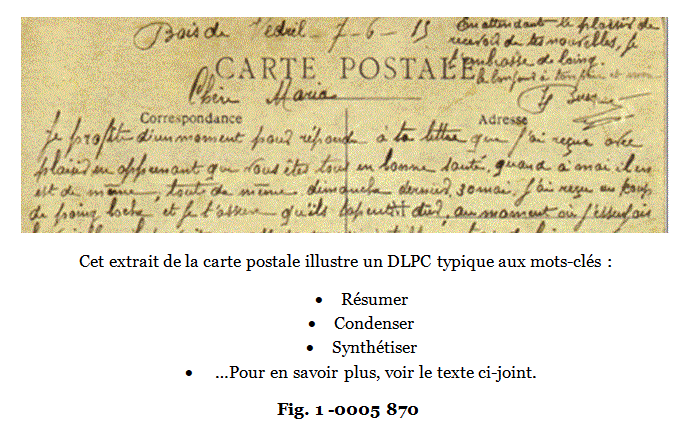 Bois de - 7 - 6 - 15
En attendant le plaisir de
recevoir de tes nouvelles, je
t'embrasse de loin
CARTE POSTALE
Chère Maria
Correspondance
Adresse
Je profite d'un moment pour répondre à ta lettre que j'ai reçue avec
plaisir en apprenant que vous êtes tous en bonne santé, quand à moi il en
est de même, tout de même dimanche dernier 30 mai j'ai reçu un coup
de poing boche et je t'assure qu'ils tapent dur, au moment où j'essayais
Cet extrait de la carte postale illustre un DLPC typique aux mots-clés :
• Résumer
• Condenser
• Synthétiser
• ...Pour en savoir plus, voir le texte ci-joint.
Fig. 1 -0005 870